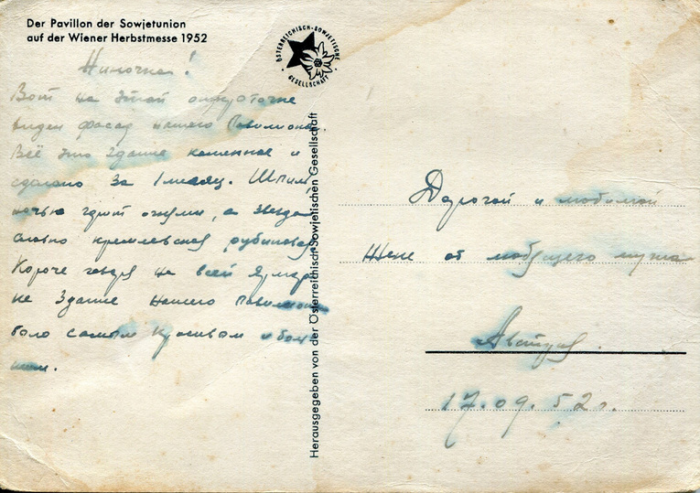 Der Pavillon der Sowjetunion
auf der Wiener Herbstmesse 1952
ÖSTERREICHISCH-SOWJETISCHE
GESELLSCHAFT
Ниночка!
Вот на этой открыточке
виден фасад нашего Павильона.
Всё это здание каменное и
сделано за 1 месяц. Шпиль
ночью горит огнями, а звезда
словно кремлевская рубиновая.
Короче говоря на всей Ярмар
ке здание нашего Павильона
было самым красивом и боль
шим.
Herausgegeben von der Österreichisch-Sowjetischen Gesellschaft
Дорогой и любимой
Жене от любящего мужа
17.09.52г.